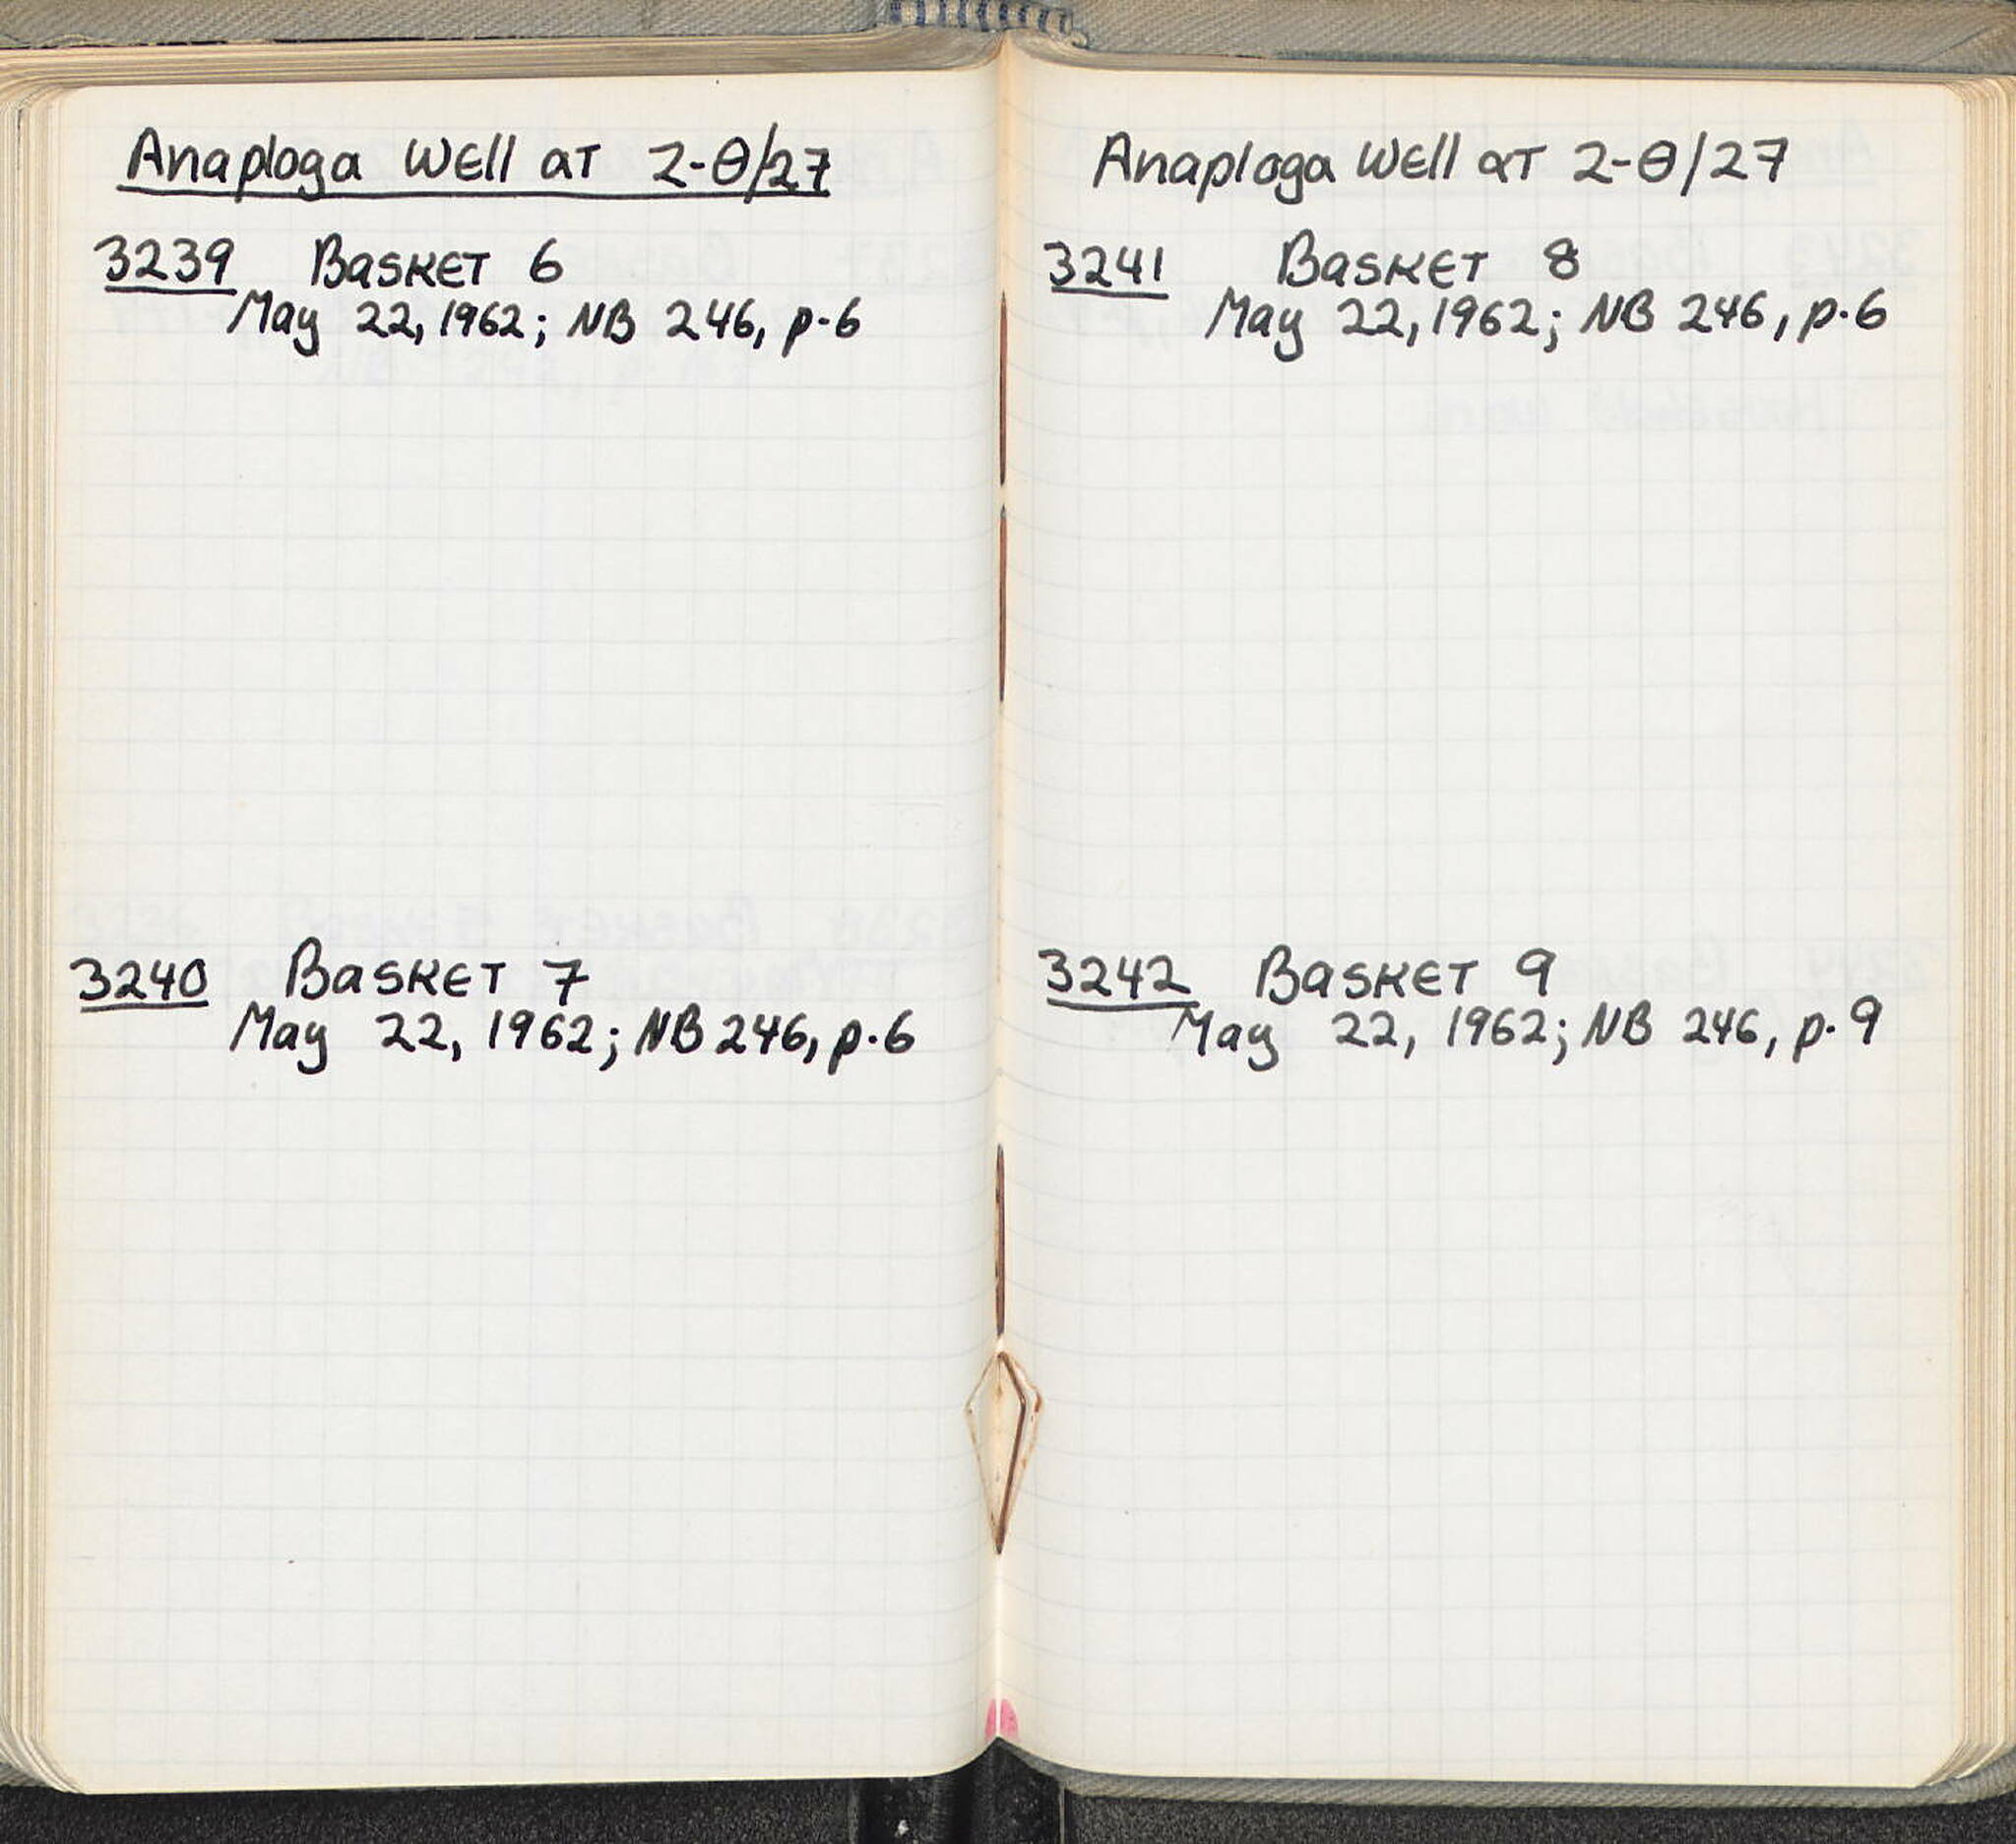 Anaploga Well at 2-Θ/27
3239 Basket 6
May 22, 1962; NB 246, p.6
3240 Basket 7
May 22, 1962; NB 246, p.6
Anaploga Well at 2-Θ/27
3241 Basket 8
May 22, 1962; NB 246, p.6
3242 Basket 9
May 22, 1962; NB 246, p.9